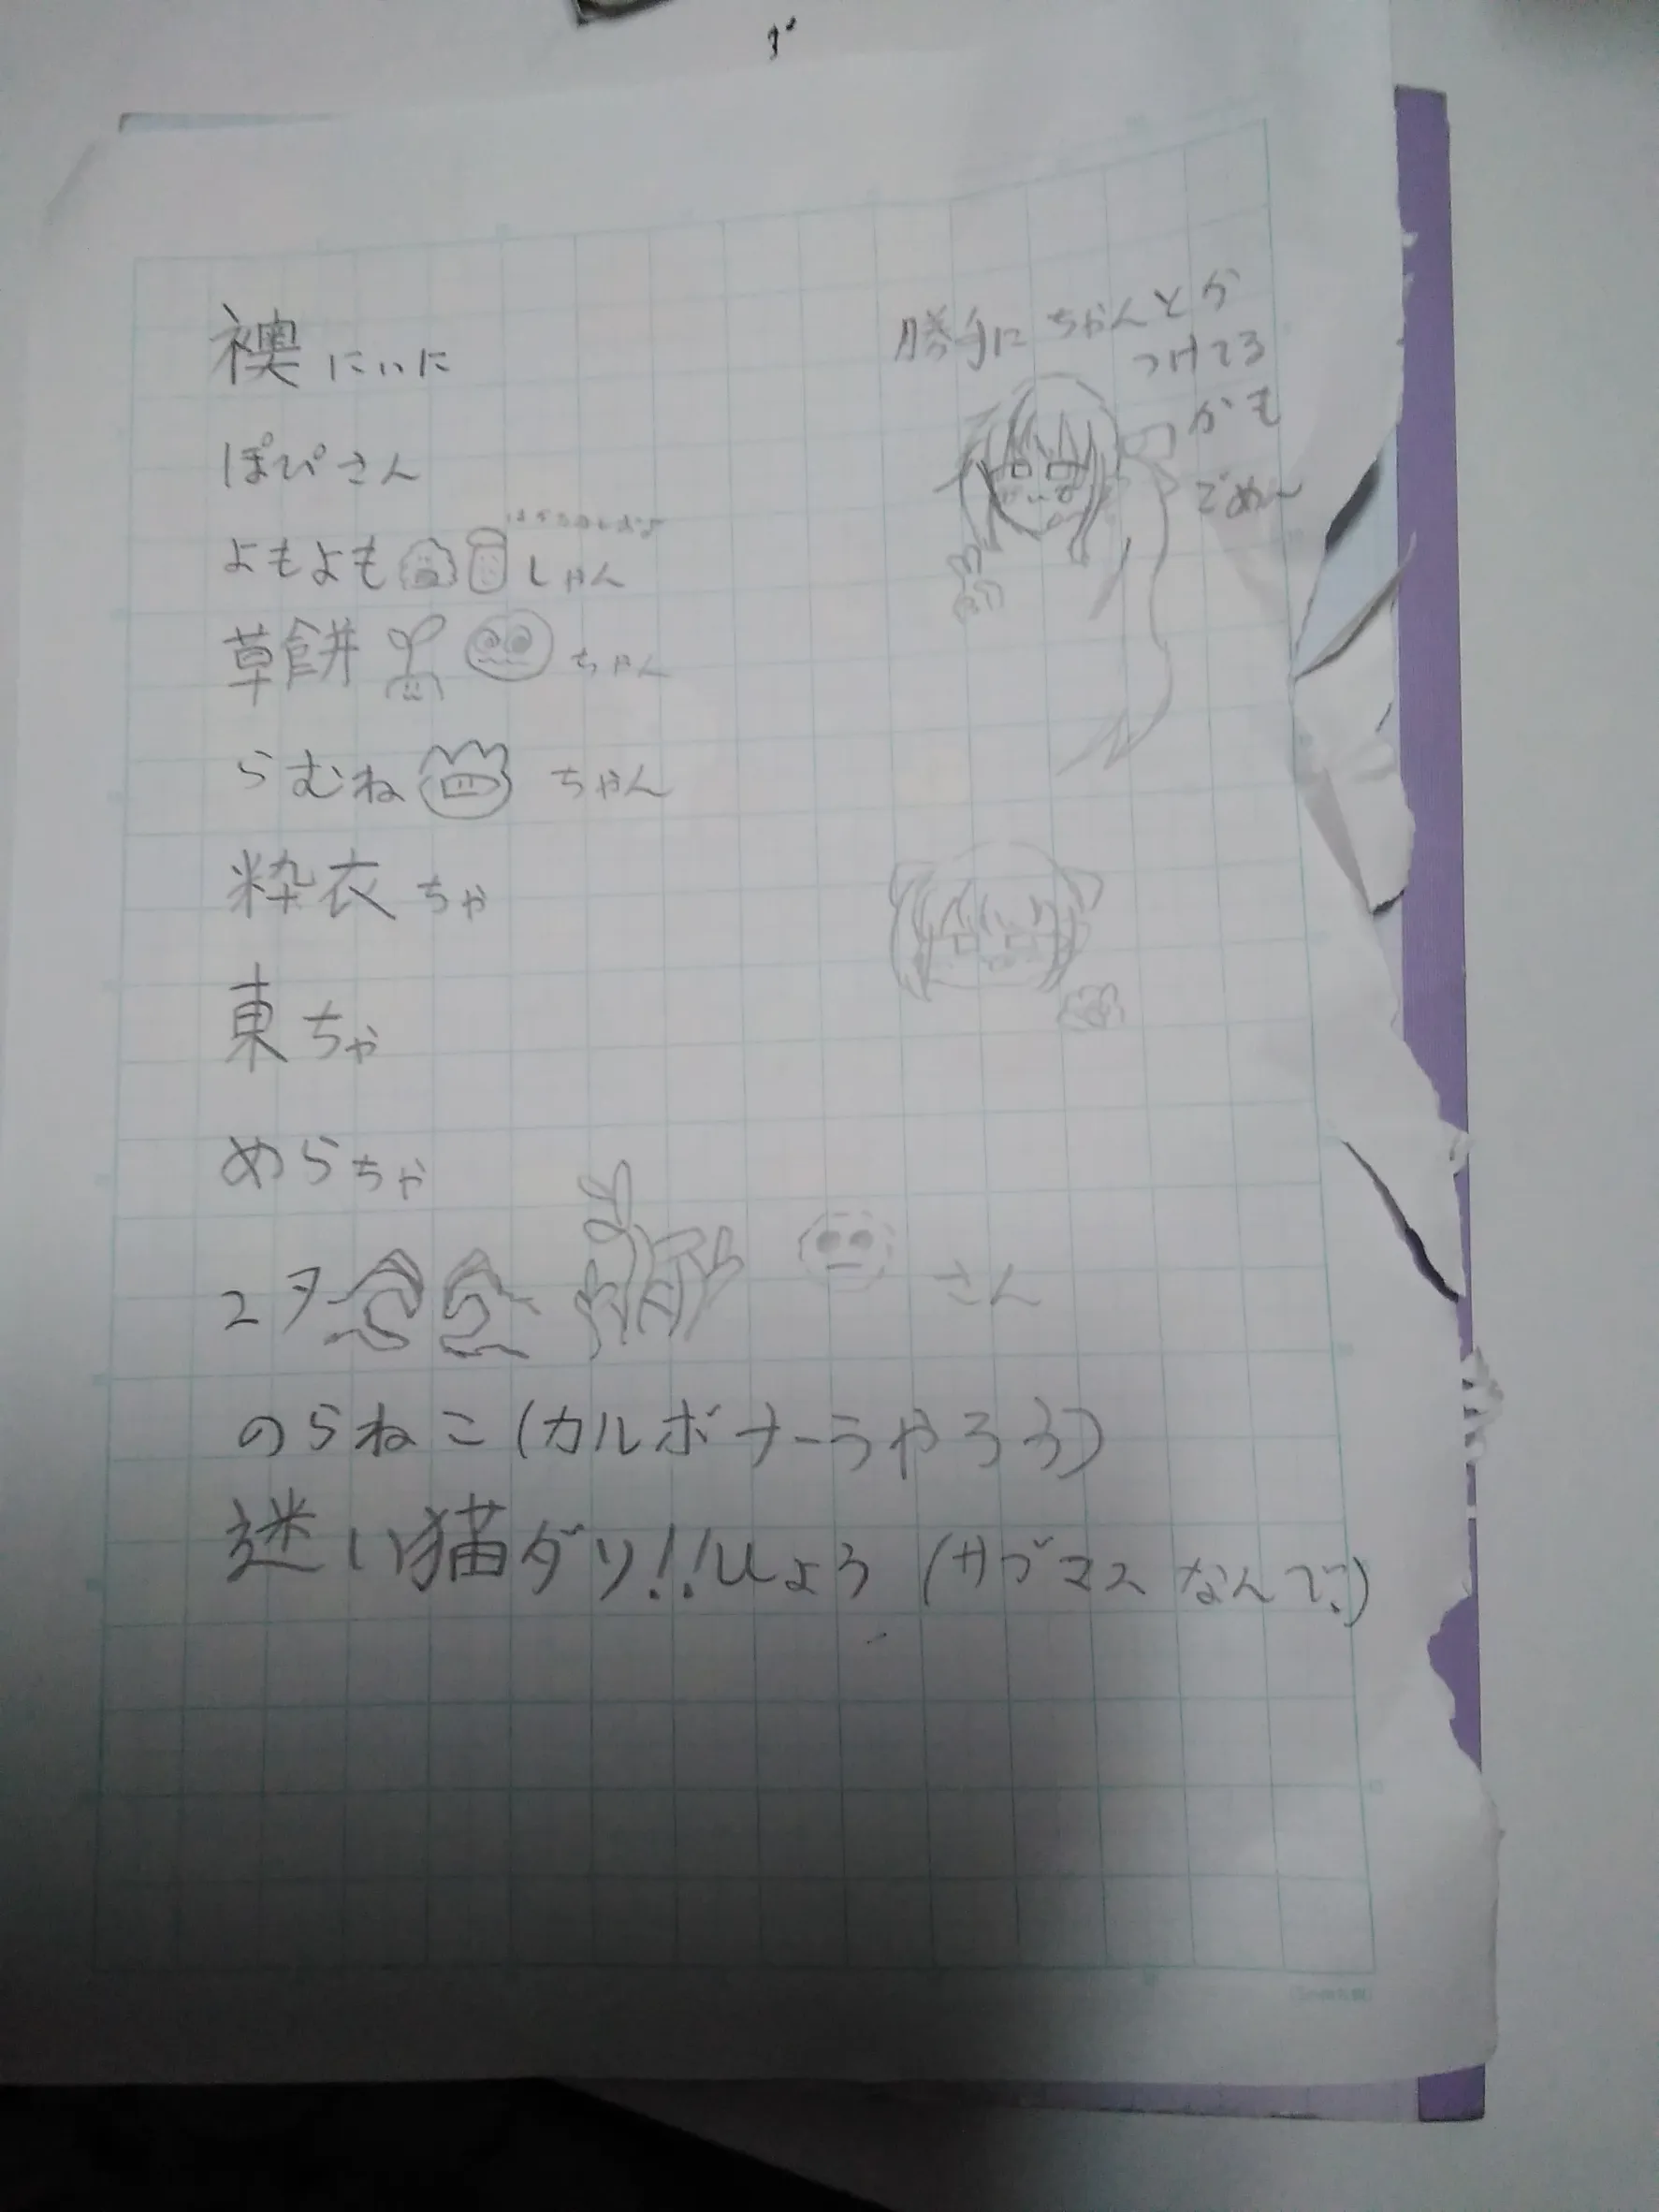 襖にぃに
ぽぴさん
よもよも しゃん
草餅 ちゃん
らむね ちゃん
粋衣ちゃ
東ちゃ
めらちゃ
コヲ さん
のらねこ(カルボナーラやろう)
迷い猫ダリ!!しょう(サブマスなんで、)
勝手にちゃんとか
つけてる
かも
ごめん